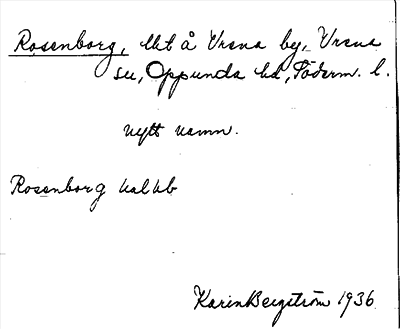 Rosenborg, lht å Vrena by, Vrena
sn, Oppunda hd, Söderm. l.
nytt namn.
Rosenborg kalkb
Karin Bergström 1936